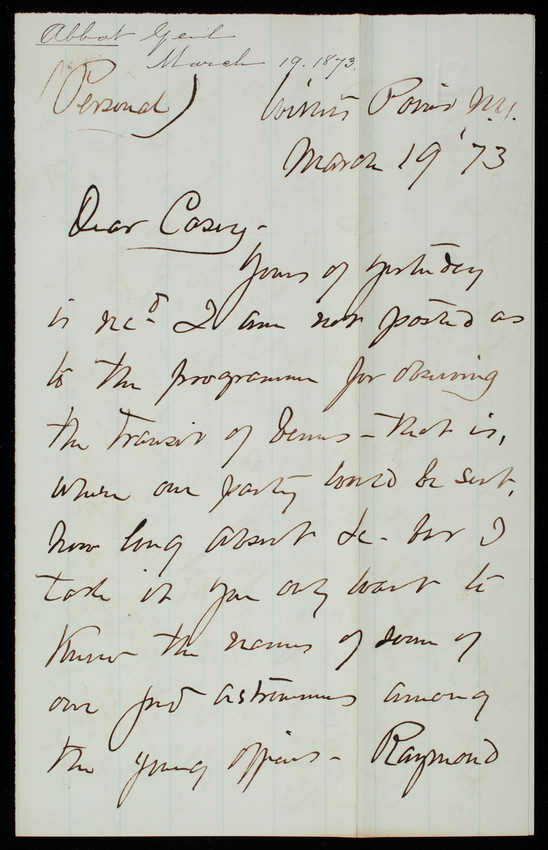 Abbot Genl
March 19. 1873.
(Personal)
Willets Point N.Y.
March 19 '73
Dear Casey -
Yours of yesterday
is recd. I am not posted as
to the programme for observing
the transit of Venus - that is,
where our party would be sent,
how long absent &c - but I
take it you only want to
know the names of some of
our good astronomers among
the young officers - Raymond